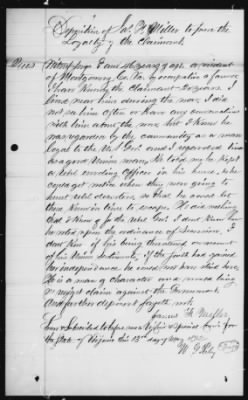 Deposition of Jas. H. Miller to prove the
Loyalty of the Claimant.
Miller says I am 45 years of age, a resident
of Montgomery Co. Va. by occupation a farmer
I have Known the Claimant 20 years. I
lived near him during the war, I did
not see him often or have any conversation
with him about the war but I Know he
was regarded by the community as a man
loyal to the U.S. Govt. and I regarded him
as a good Union man. He told me he Kept
a rebel enrolling officer in his house, who
could get notice when they were going to
hunt rebel deserters, so that he could let
them Know in time to escape. He did nothing
that I Know of for the rebel Govt. I dont Know how
he voted upon the ordinance of secession. I
dont Know of his being threatened on account
of his Union sentiments, if the South had gained
her independence he could not have lived here.
He is a man of character and would bring
no unjust claim against the Government.
And further deponent sayeth not.
James H. Miller
Sworn & Subscribed to before me a U.S. Special Com. for
the State of Virginia this 13th day of May